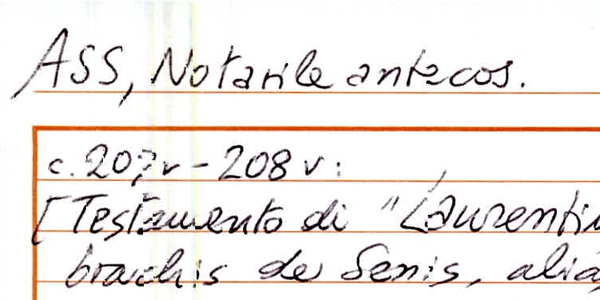 ASS, Notarile antecos.
c. 207v - 208v:
[Testamento di "Laurentiu
brachis de Senis, alia